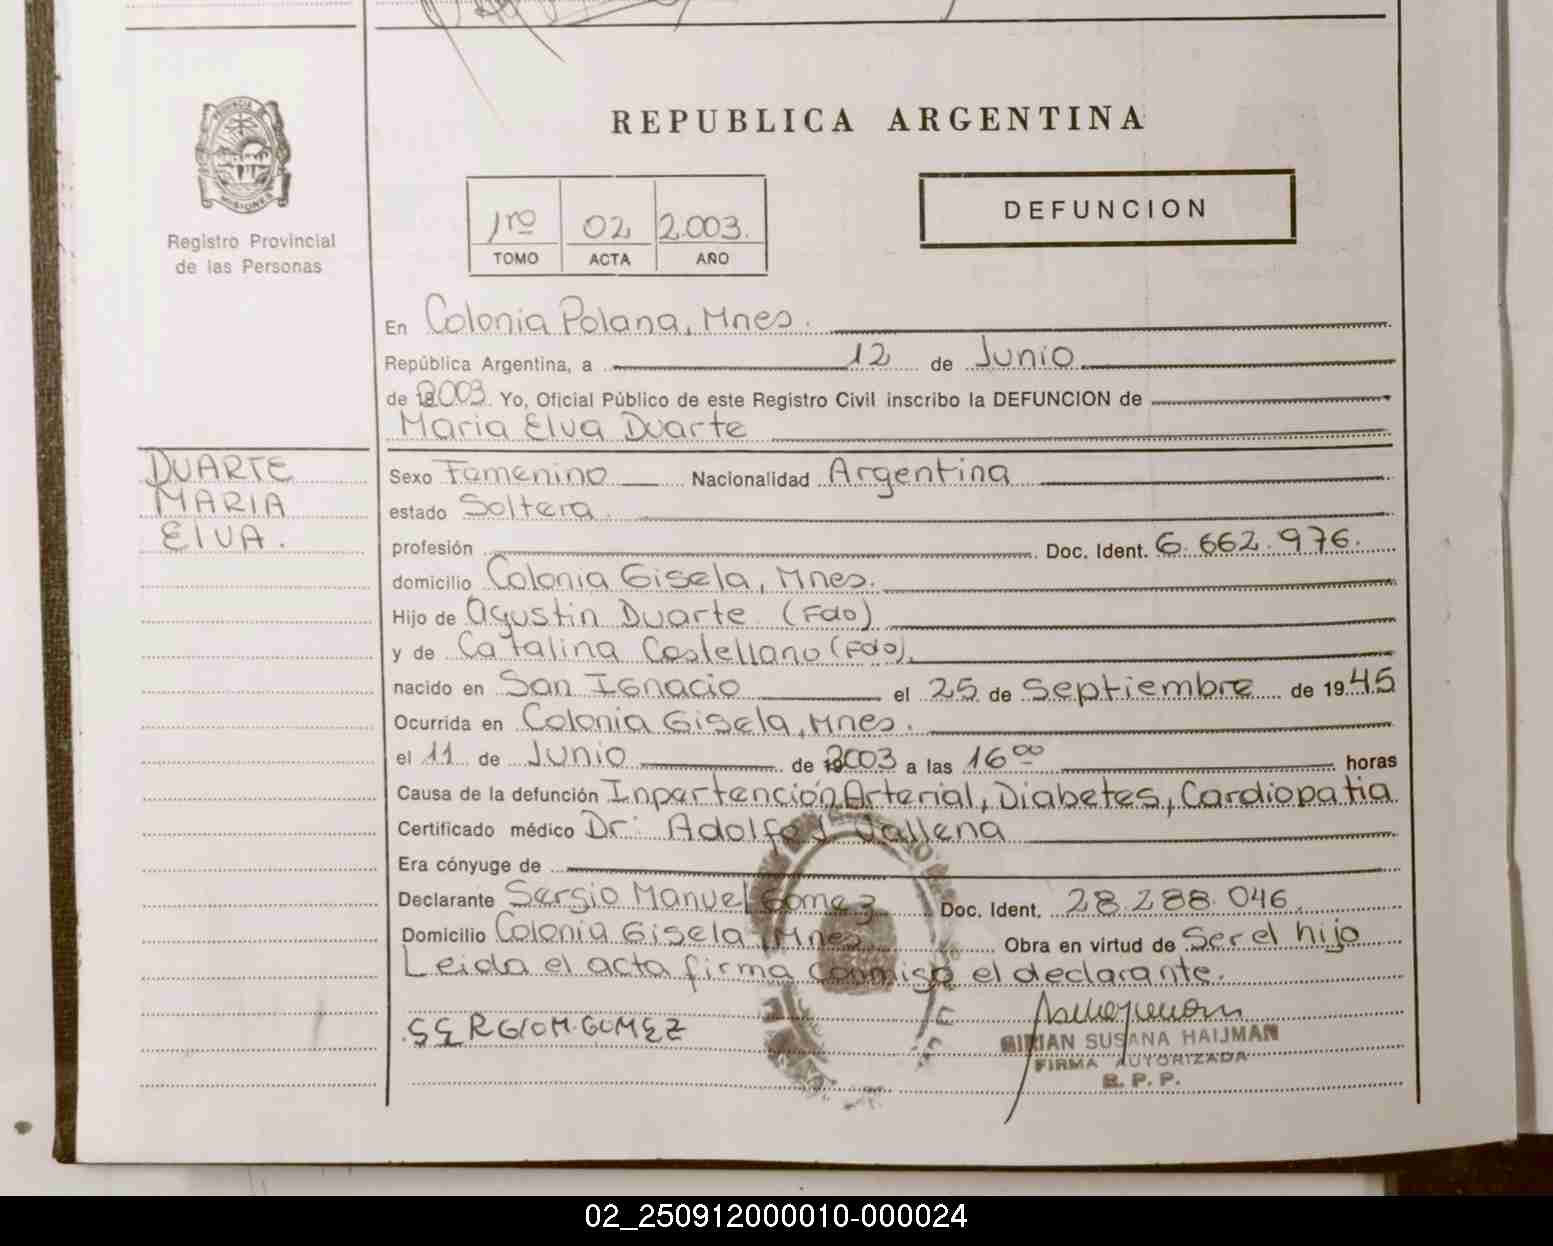 REPUBLICA ARGENTINA
PROVINCIA DE
MISIONES
Registro Provincial
de las Personas
1ro 02 2.003.
TOMO ACTA AÑO
DEFUNCION
En Colonia Polana, Mnes.
República Argentina, a 12 de Junio
de 2003. Yo, Oficial Público de este Registro Civil inscribo la DEFUNCION de
Maria Elva Duarte
DUARTE
MARIA
ElVA.
Sexo Femenino Nacionalidad Argentina
estado Soltera.
profesión Doc. Ident. 6.662.976.
domicilio Colonia Gisela, Mnes.
Hijo de Agustin Duarte (Fdo)
y de Catalina Castellano (Fdo).
nacido en San Ignacio el 25 de Septiembre de 1945
Ocurrida en Colonia Gisela, Mnes.
el 11 de Junio de 2003 a las 16 00 horas
Causa de la defunción Inpertención Arterial, Diabetes, Cardiopatia
Certificado médico Dr. Adolfo J Vallena
Era cónyuge de
Declarante Sergio Manuel Gomez Doc. Ident. 28.288.046.
Domicilio Colonia Gisela, Mnes Obra en virtud de Ser el hijo
Leida el acta firma conmigo el declarante.
SERGIO M. GOMEZ
MIRIAN SUSANA HAIJMAN
FIRMA AUTORIZADA
R. P. P.
02_250912000010-000024